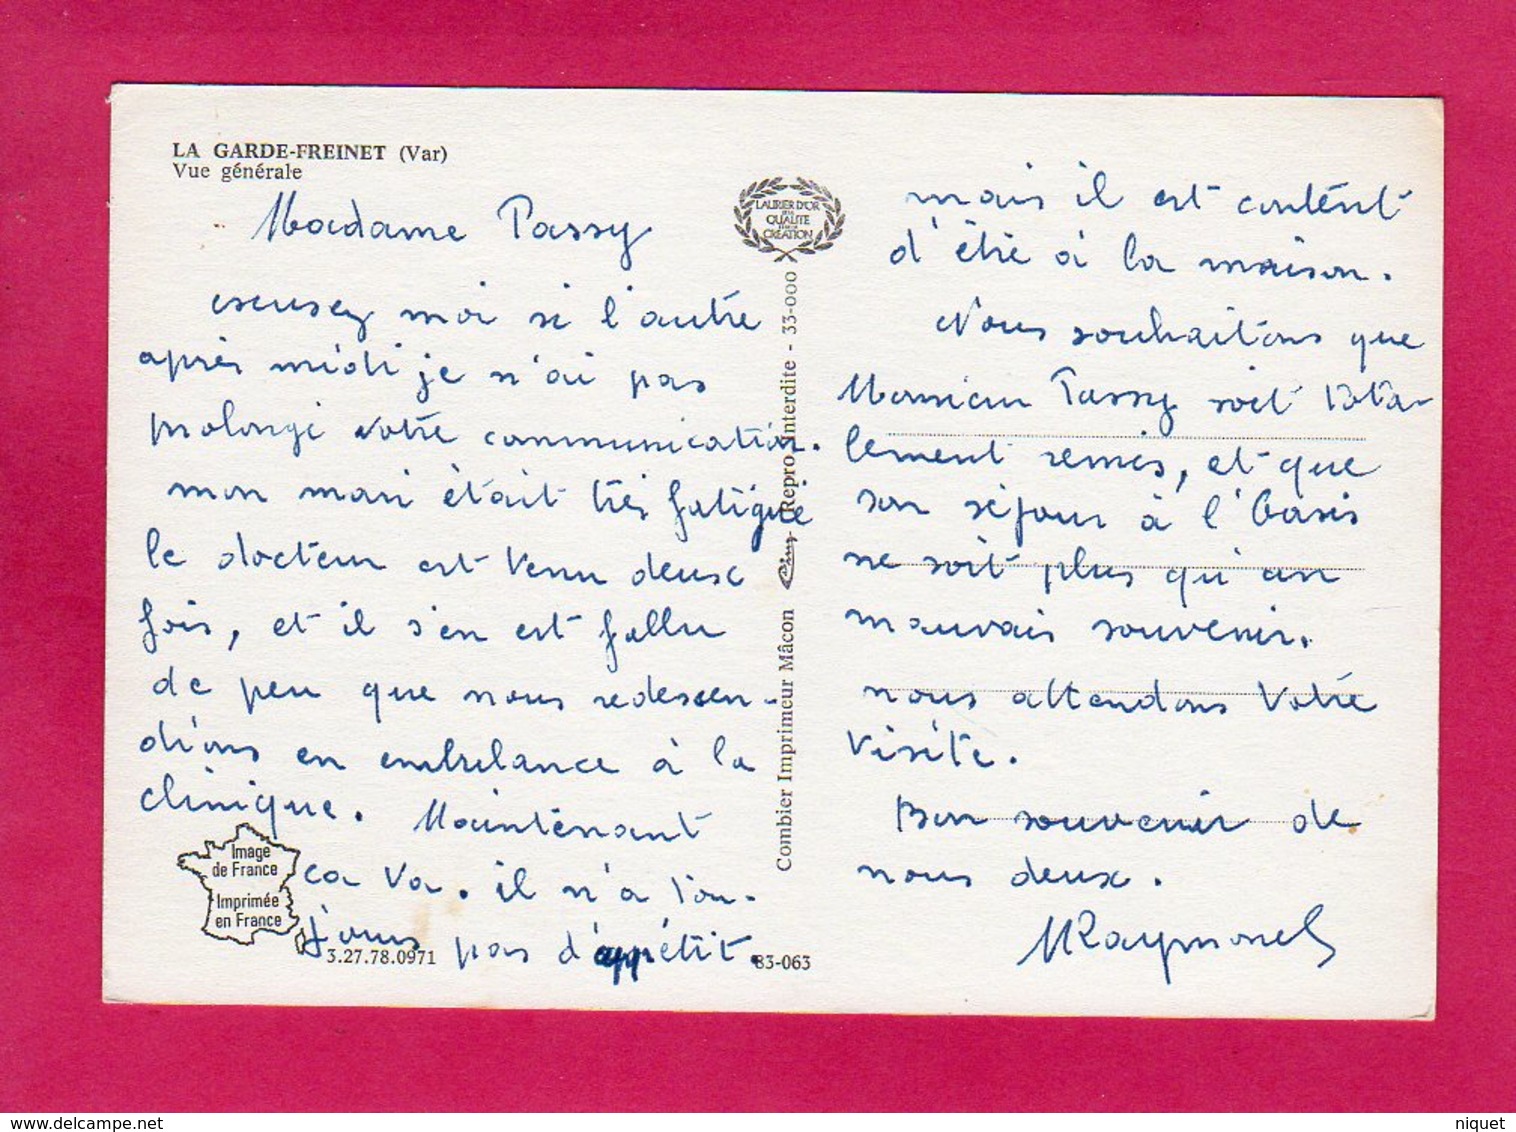 LA GARDE-FREINET (Var)
Vue générale
Madame Passy
escusez moi si l'autre
après midi je n'ai pas
prolongé votre communication.
mon mari était très fatigué
le docteur est venu deux
fois, et il s'en est fallu
de peu que nous redessen-
dions en embulance à la
clinique. Maintenant
ca va. il n'a tou-
jours pas d'appétit.
Image
de France
Imprimée
en France
3.27.78.0971
83-063
LAURIER D'OR
DE LA
QUALITÉ
CRÉATION
Combier Imprimeur Mâcon (Repro. Interdite - 33-000
mais il est content
d'être à la maison.
Nous souhaitons que
Monsieur Passy soit tota-
lement remis, et que
son séjour à l'Oasis
ne soit plus qu'un
mauvais souvenir.
nous attendons votre
visite.
Bon souvenir de
nous deux.
MRaymond
niquet